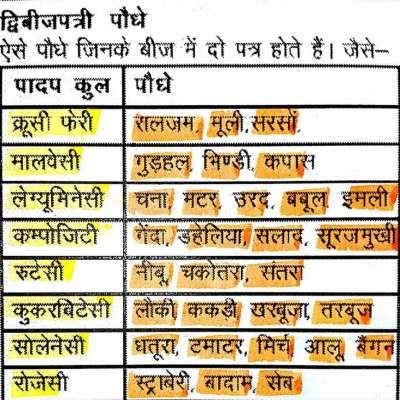 द्विबीजपत्री पौधे
ऐसे पौधे जिनके बीज में दो पत्र होते हैं। जैसे–
पादप कुल पौधे
क्रूसी फेरी शलजम, मूली, सरसों,
मालवेसी गुड़हल, भिण्डी, कपास
लेग्यूमिनेसी चना, मटर, उरद, बबूल, इमली
कम्पोजिटी गेंदा, डहेलिया, सलाद, सूरजमुखी
रुटेसी नीबू, चकोतरा, संतरा
कुकरबिटेसी लौकी, ककडी, खरबूजा, तरबूज
सोलेनेसी धतूरा, टमाटर, मिर्च, आलू, बैंगन
रोजेसी स्ट्राबेरी, बादाम, सेब